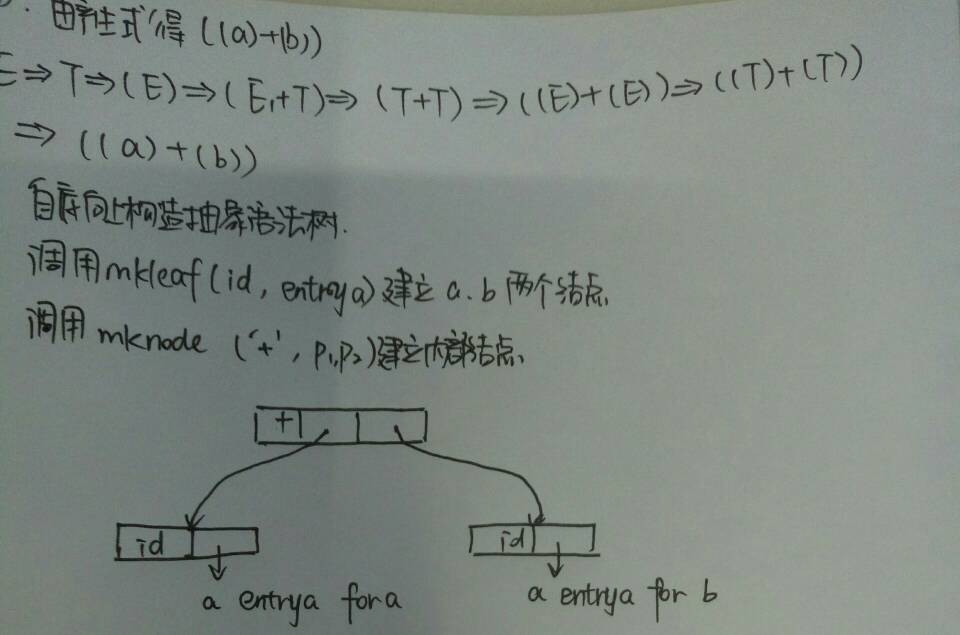 由产生式得 ((a)+(b))
E⇒T⇒(E)⇒(E₁+T)⇒(T+T)⇒((E)+(E))⇒((T)+(T))
⇒((a)+(b))
自底向上构造抽象语法树.
调用mkleaf(id, entrya)建立a.b两个结点.
调用mknode ('+', p₁,p₂)建立内部结点.
+
id id
a entrya for a a entrya for b